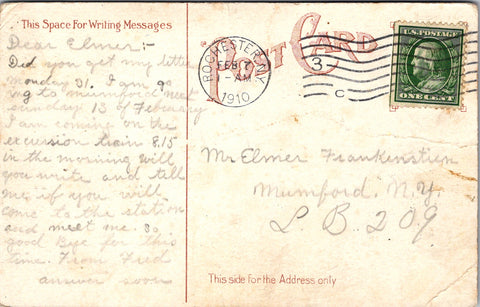 This Space For Writing Messages
POST CARD
ROCHESTER, N.Y.
FEB 7
-AM
1910
3
C
U.S. POSTAGE
ONE CENT
Dear Elmer:-
Did you get my letter
monday 31. I am go
ng to mumford next
sunday 13 of February
I am coming on the
excursion train 8.15
in the morning will
you write and tell
me if you will
come to the station
and meet me. So
good Bye for this
time. From Fred
answer soon
Mr Elmer Frankenstien
Mumford. N.Y.
L B. 209
This side for the Address only